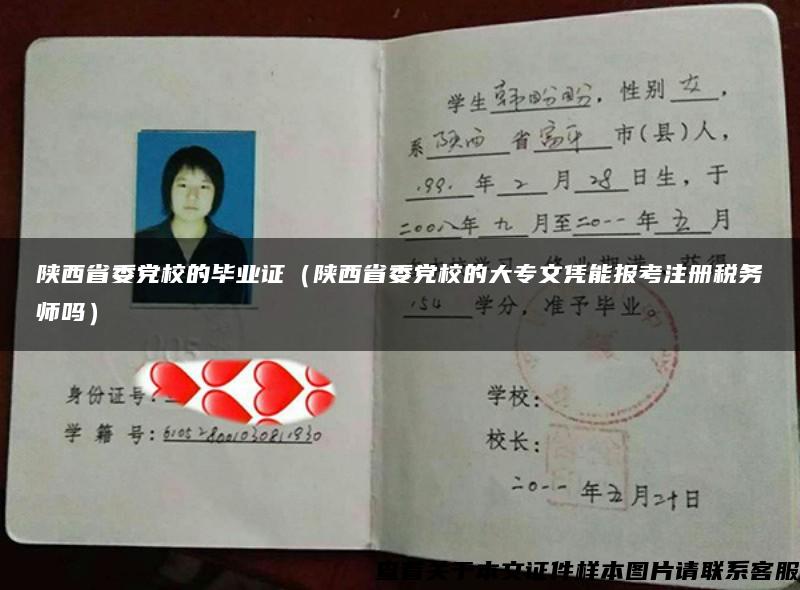 学生韩盼盼，性别女，
系陕西省富平市(县)人，
1991年2月28日生，于
二00八年九月至二0一一年五月
陕西省委党校的毕业证（陕西省委党校的大专文凭能报考注册税务
师吗）
154学分，准予毕业。
身份证号：
学籍号：
学校：
校长：
二0一一年五月二十日
查看关于本文证件样本图片请联系客服